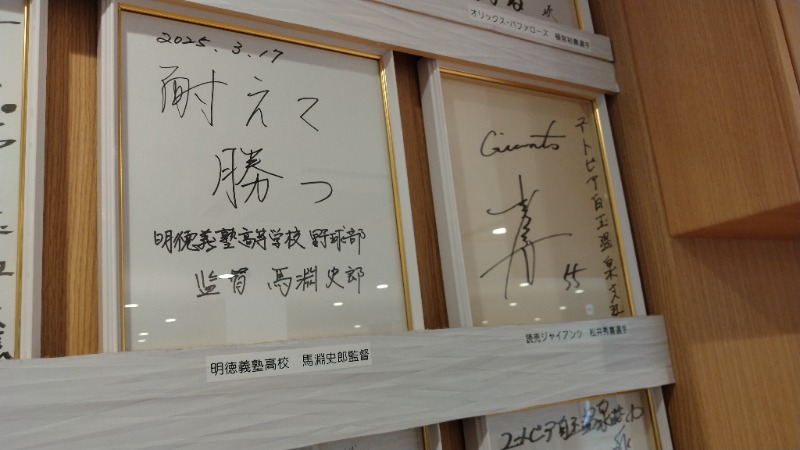 オリックス・バファローズ 頓宮裕真選手
2025.3.17
耐えて
勝つ
明徳義塾高等学校 野球部
監督 馬淵史郎
明徳義塾高校 馬淵史郎監督
Giants
55
ユートピア白玉温泉
読売ジャイアンツ 松井秀喜選手
ユートピア白玉温泉